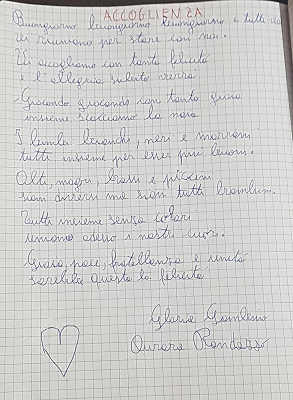 ACCOGLIENZA
Buongiorno buongiorno buongiorno a tutti
riunivano per stare con noi.
Vi accogliamo con tanta felicità
e l'allegria subito verrà.
Giocando giocando con tanta gioia
insieme scacciamo la noia
I bimbi bianchi, neri e marroni
tutti insieme per esser più buoni.
Alti, magri, bassi e piccini
siam diversi ma siam tutti bambini.
Tutti insieme senza colori
uniamo adesso i nostri cuori.
Gioia, pace, fratellanza e unità
sarebbe questa la felicità
Gloria
Aurora Randazzo